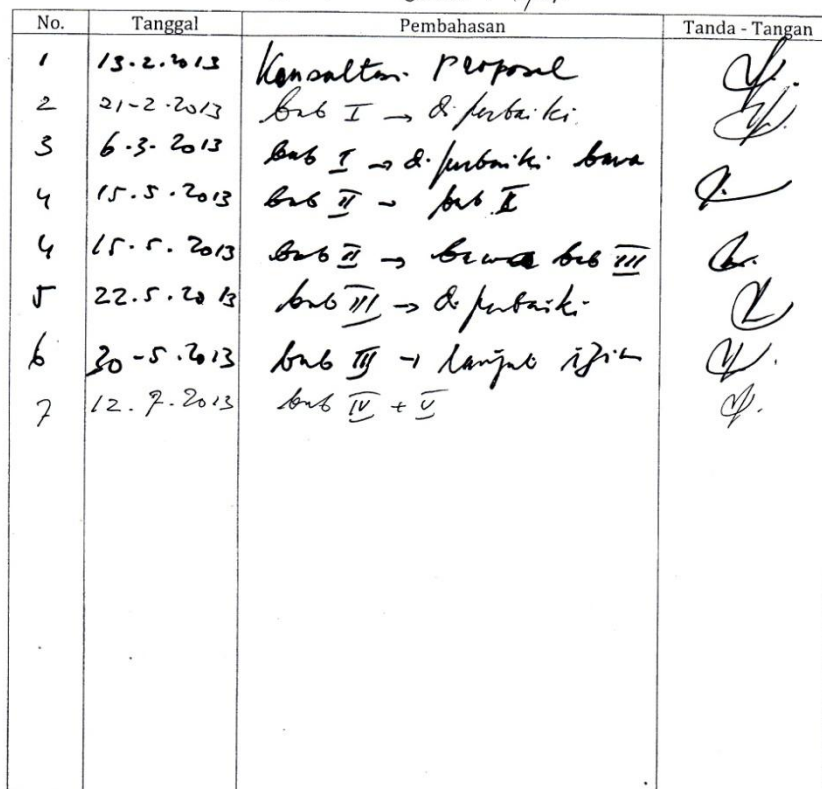 No. Tanggal Pembahasan Tanda - Tangan
1 13.2.2013 Konsultasi Proposal
2 21-2-2013 bab I → diperbaiki
3 6.3.2013 bab I → diperbaiki bawa
4 15.5.2013 bab II - bab II
4 15.5.2013 bab II → bawa bab III
5 22.5.2013 bab III → diperbaiki
6 30-5.2013 bab III → lanjut izin
7 12.7.2013 bab IV + V